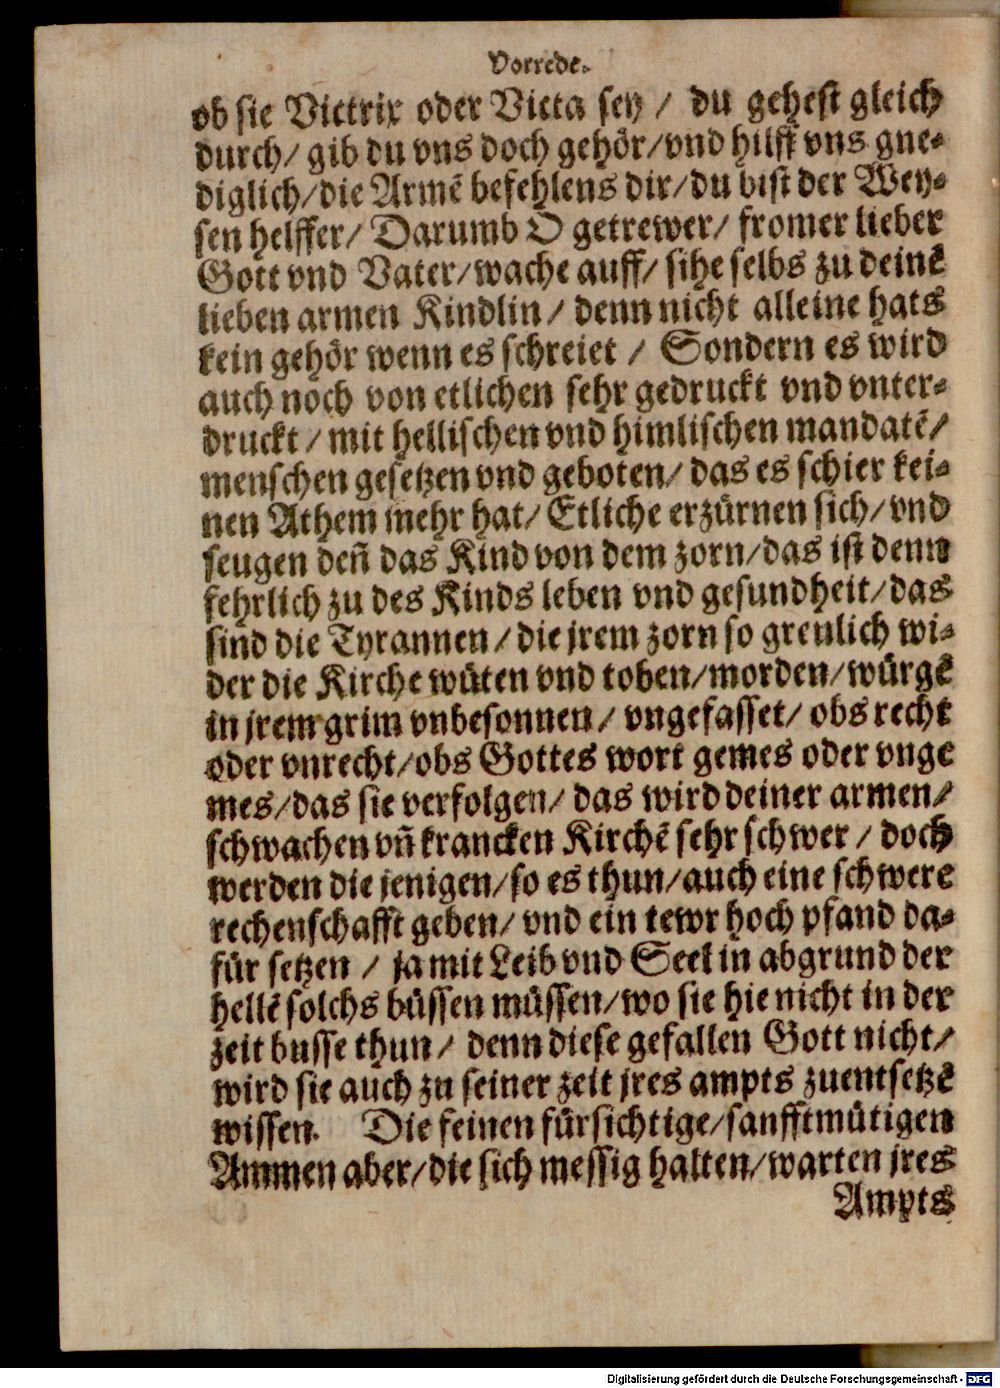 Vorrede.
ob sie Victrix oder Victa sey / du gehest gleich
durch/ gib du vns doch gehör/vnd hilff vns gne⸗
diglich/die Armē befehlens dir/du bist der Wey⸗
sen helffer/ Darumb O getrewer/ fromer lieber
Gott vnd Vater/wache auff/ sihe selbs zu deinē
lieben armen Kindlin / denn nicht alleine hats
kein gehör wenn es schreiet / Sondern es wird
auch noch von etlichen sehr gedruckt vnd vnter⸗
druckt / mit hellischen vnd himlischen mandatē/
menschen gesetzen vnd geboten/ das es schier kei⸗
nen Athem mehr hat/ Etliche erzürnen sich/ vnd
seugen deñ das Kind von dem zorn/das ist denn
fehrlich zu des Kinds leben vnd gesundheit/das
sind die Tyrannen / die jrem zorn so grenlich wi⸗
der die Kirche wüten vnd toben/morden/würgē
in jrem grim vnbesonnen/ vngefasset/ obs recht
oder vnrecht/obs Gottes wort gemes oder vnge
mes/das sie verfolgen/ das wird deiner armen/
schwachen vñ krancken Kirchē sehr schwer / doch
werden die jenigen/so es thun/auch eine schwere
rechenschafft geben/ vnd ein tewr hoch pfand da⸗
für setzen / ja mit Leib vnd Seel in abgrund der
hellē solchs büssen müssen/wo sie hie nicht in der
zeit busse thun/ denn diese gefallen Gott nicht/
wird sie auch zu seiner zeit jres ampts zuentsetzē
wissen. Die feinen fürsichtige/sanfftmütigen
Ammen aber/die sich messig halten/warten jres
Ampts
Digitalisierung gefördert durch die Deutsche Forschungsgemeinschaft - DFG